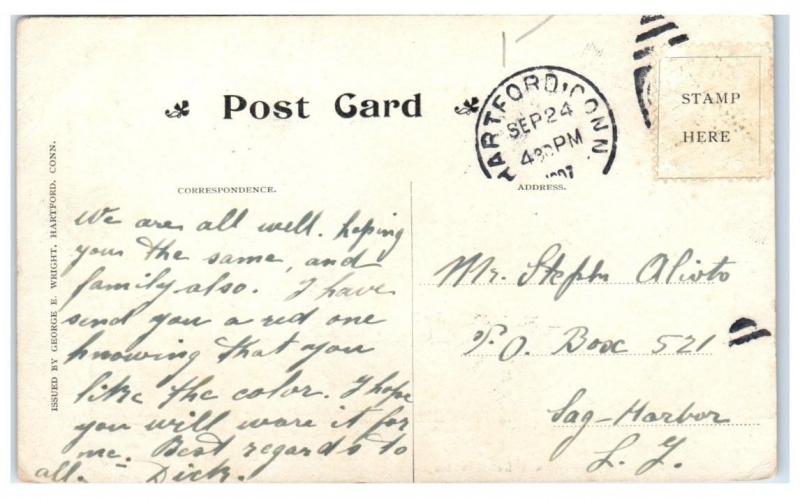 Post Card
HARTFORD, CONN.
SEP 24
430 PM
1907
STAMP
HERE
ISSUED BY GEORGE E. WRIGHT, HARTFORD, CONN.
CORRESPONDENCE.
ADDRESS.
We are all well. hoping
your the same, and
family also. I have
send you a red one
knowing that you
like the color. I hope
you will ware it for
me. Best regards to
all. – Dick.
Mr. Stephn Alioto
P.O. Box 521
Sag-Harbor
L. I.